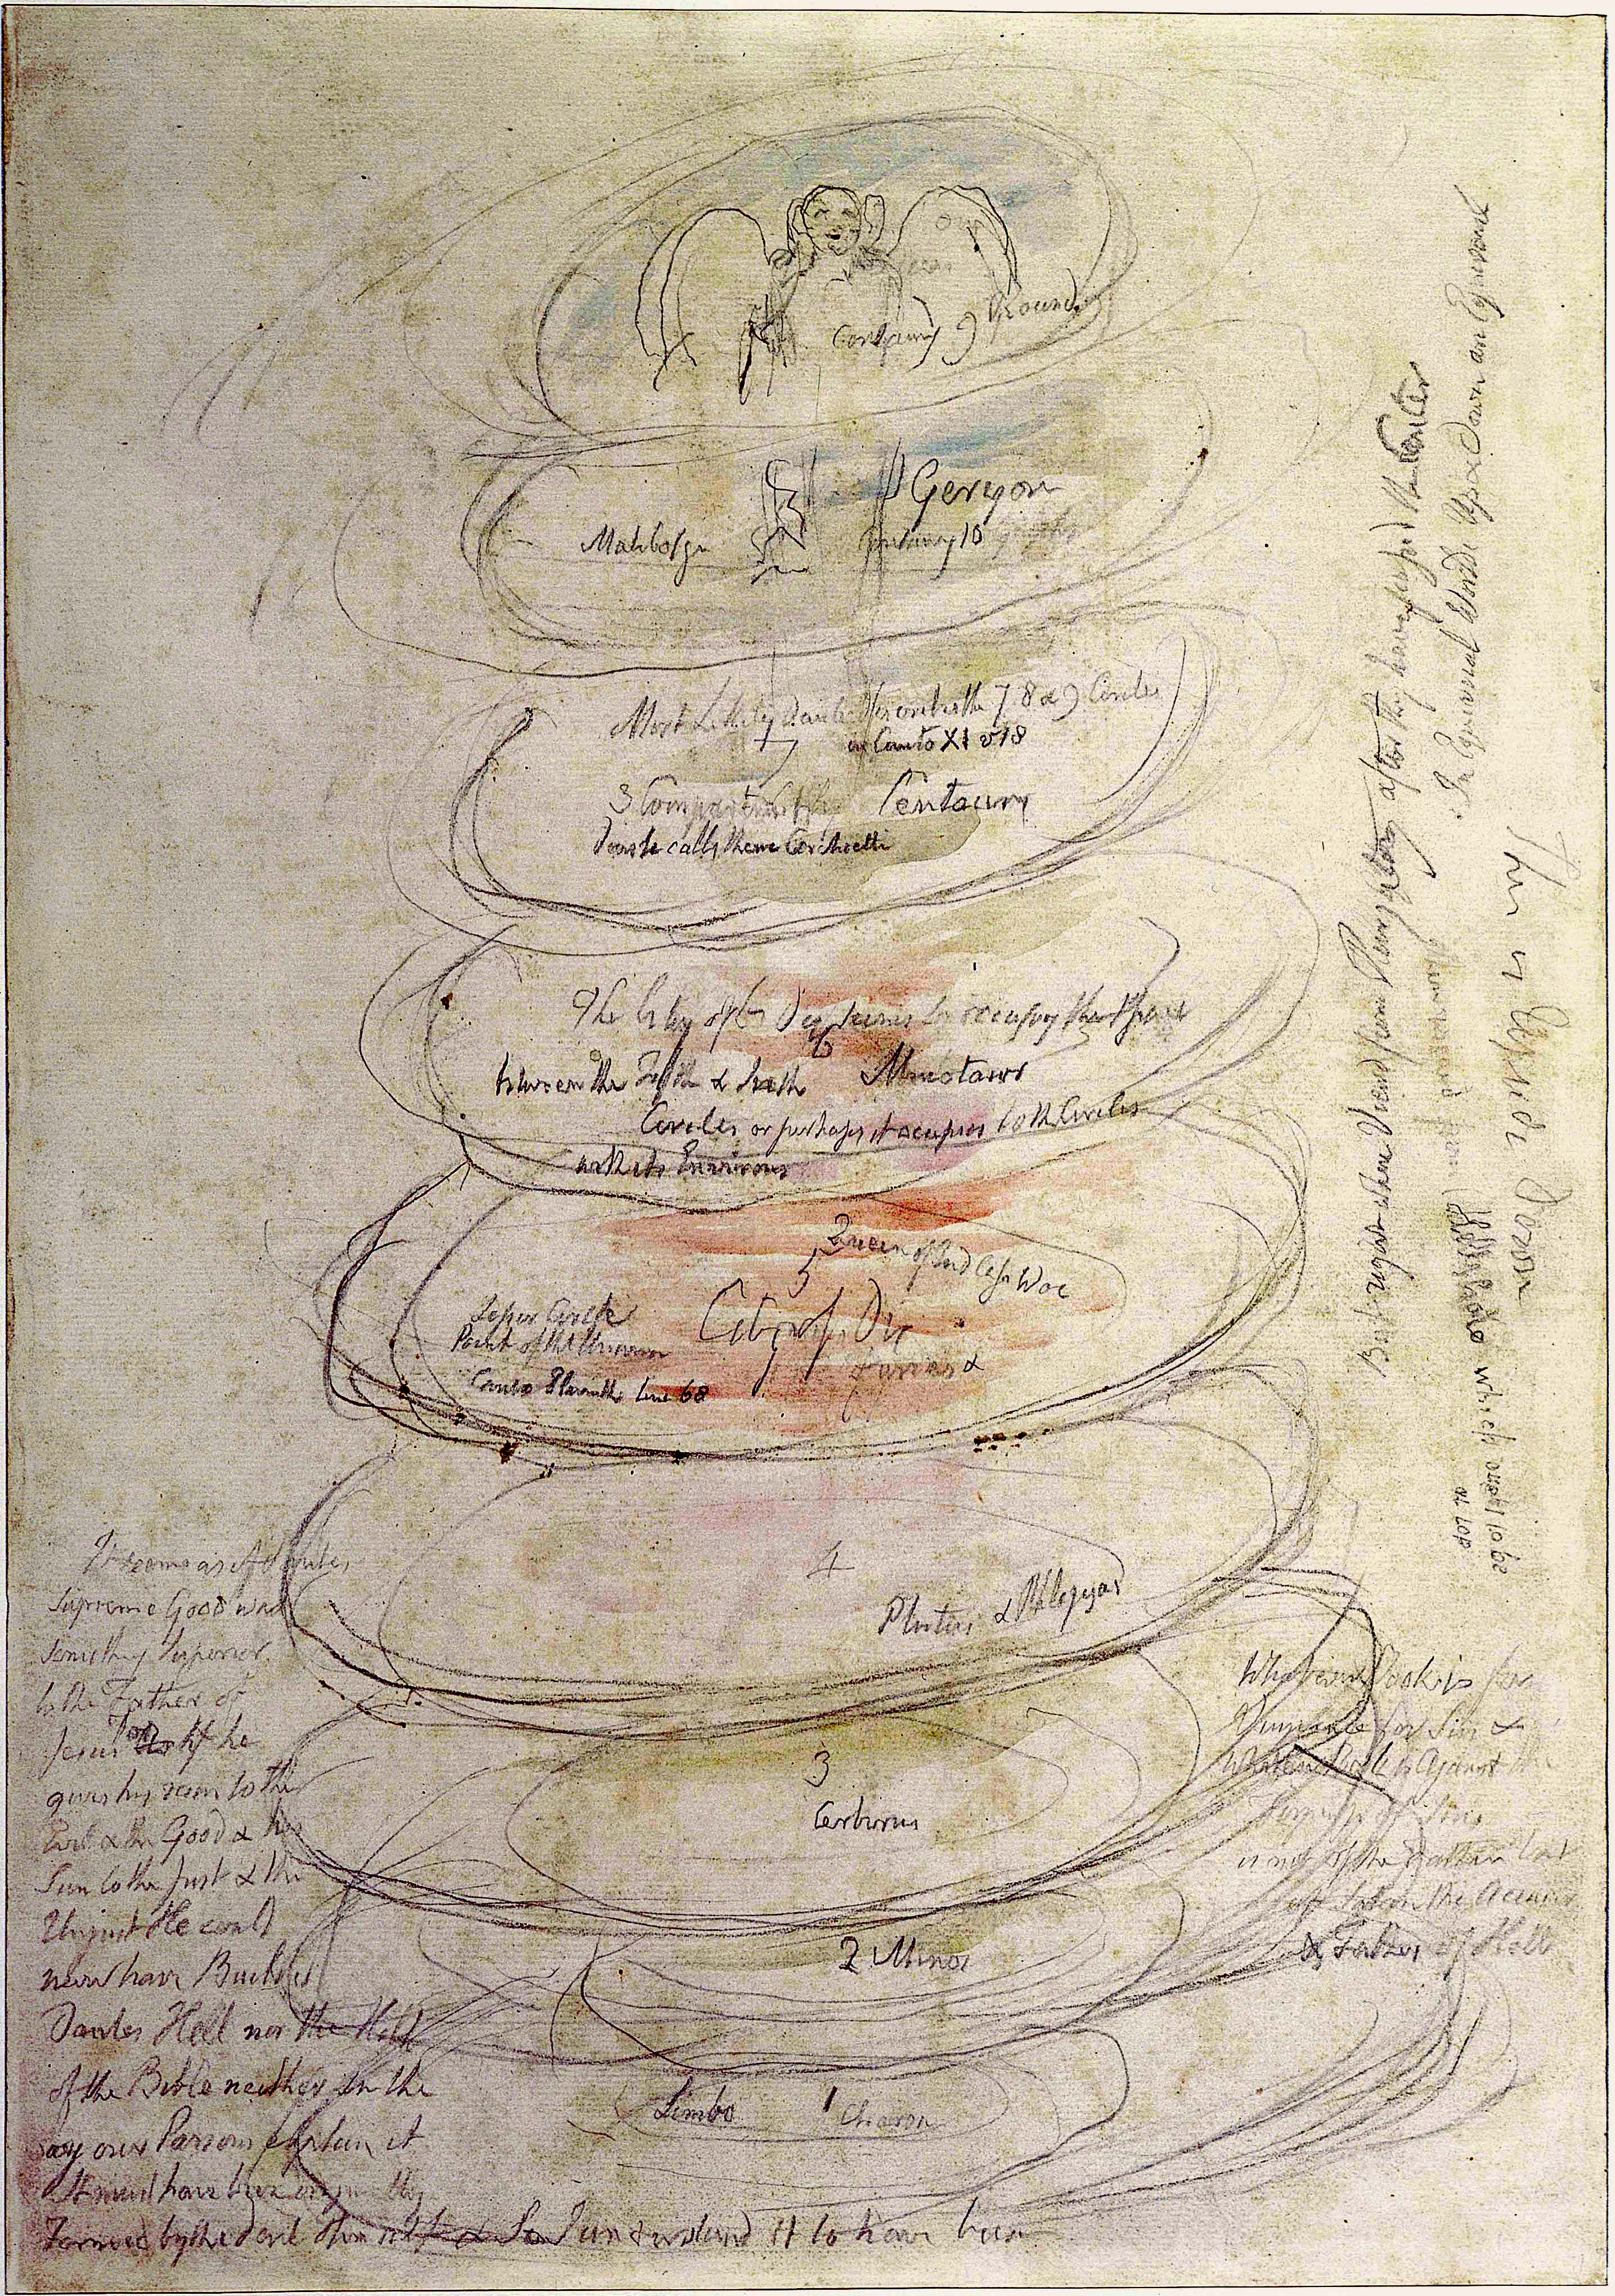 Containing 9 Rounds
Geryon
Malebolge
Containing 10
Most likely Dante describes the 7 8 & 9 Circles
in Canto XI v 18
7
3 Compartments
Centaurs
Dante calls them Cerchietti
The City of Dis seems to occupy the Space
between the Fifth & Sixth
6
Minotaur
Circles or perhaps it occupies both Circles
with its Environs
5
Queen of Endless Woe
Lesser Circle
Point of the Universe
Canto Eleventh line 68
City of Dis
Furies &
4
Plutus & Phlegyas
3
Cerberus
2 Minos
Limbo 1 Charon
It seems as if Dantes
supreme Good was
something Superior
to the Father of
Jesus for if he
gives his rain to the
Evil & the Good & his
Sun to the Just & the
Unjust He could
never have Builded
Dantes Hell nor the Hell
of the Bible neither in the
way our Parsons explain it
It must have been originally
Formed by the devil Himself & So I understand it to have been
Whatever Book is for
Vengeance for Sin &
Whatever Book is Against the
Forgiveness of Sins
is not of the Father but
of Satan the Accuser
& Father of Hell
This is Upside Down
But right when Viewd from Purgatory after they have passed the Center
In Equivocal Worlds Up & Down are Equivocal